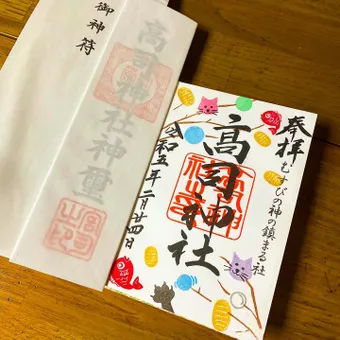 御神符
高司神社神璽
宮司之印
奉拝
むすびの神の鎮まる社
高司神社
令和五年二月廿四日